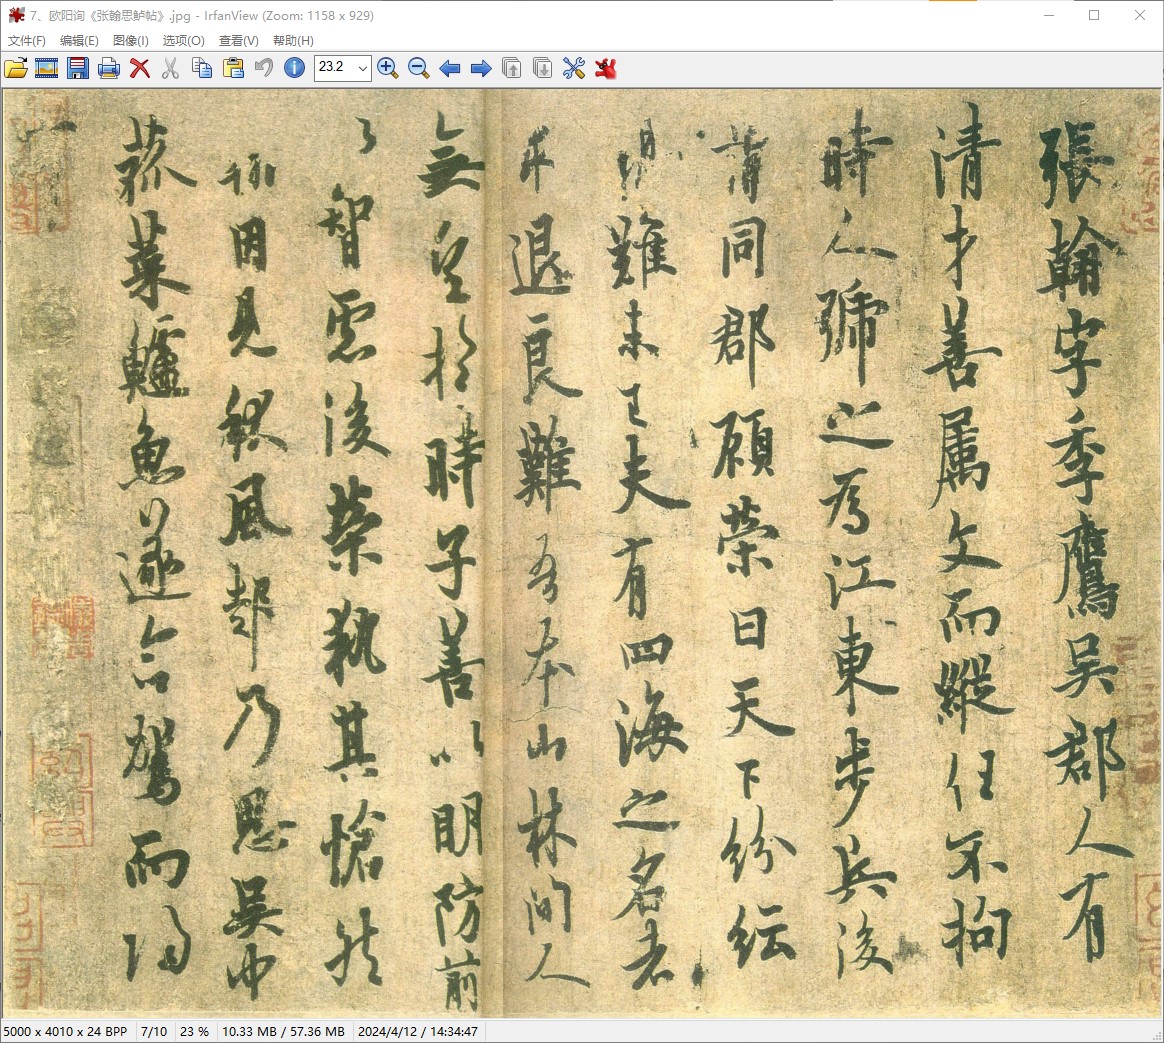 7、欧阳询《张翰思鲈帖》.jpg - IrfanView (Zoom: 1158 x 929)
文件(F) 编辑(E) 图像(I) 选项(O) 查看(V) 帮助(H)
23.2
張翰字季鷹吳郡人有
清才善属文而縱任不拘
時人號之為江東步兵後
同郡顧榮曰天下紛紜
難未已夫有四海之名者
求退良難吾本山林間人
無望於時子善以明防前
智慮後榮執其愴然
因見秋風起乃思吳中
菰菜鱸魚遂命駕而歸
5000 x 4010 x 24 BPP 7/10 23 % 10.33 MB / 57.36 MB 2024/4/12 / 14:34:47